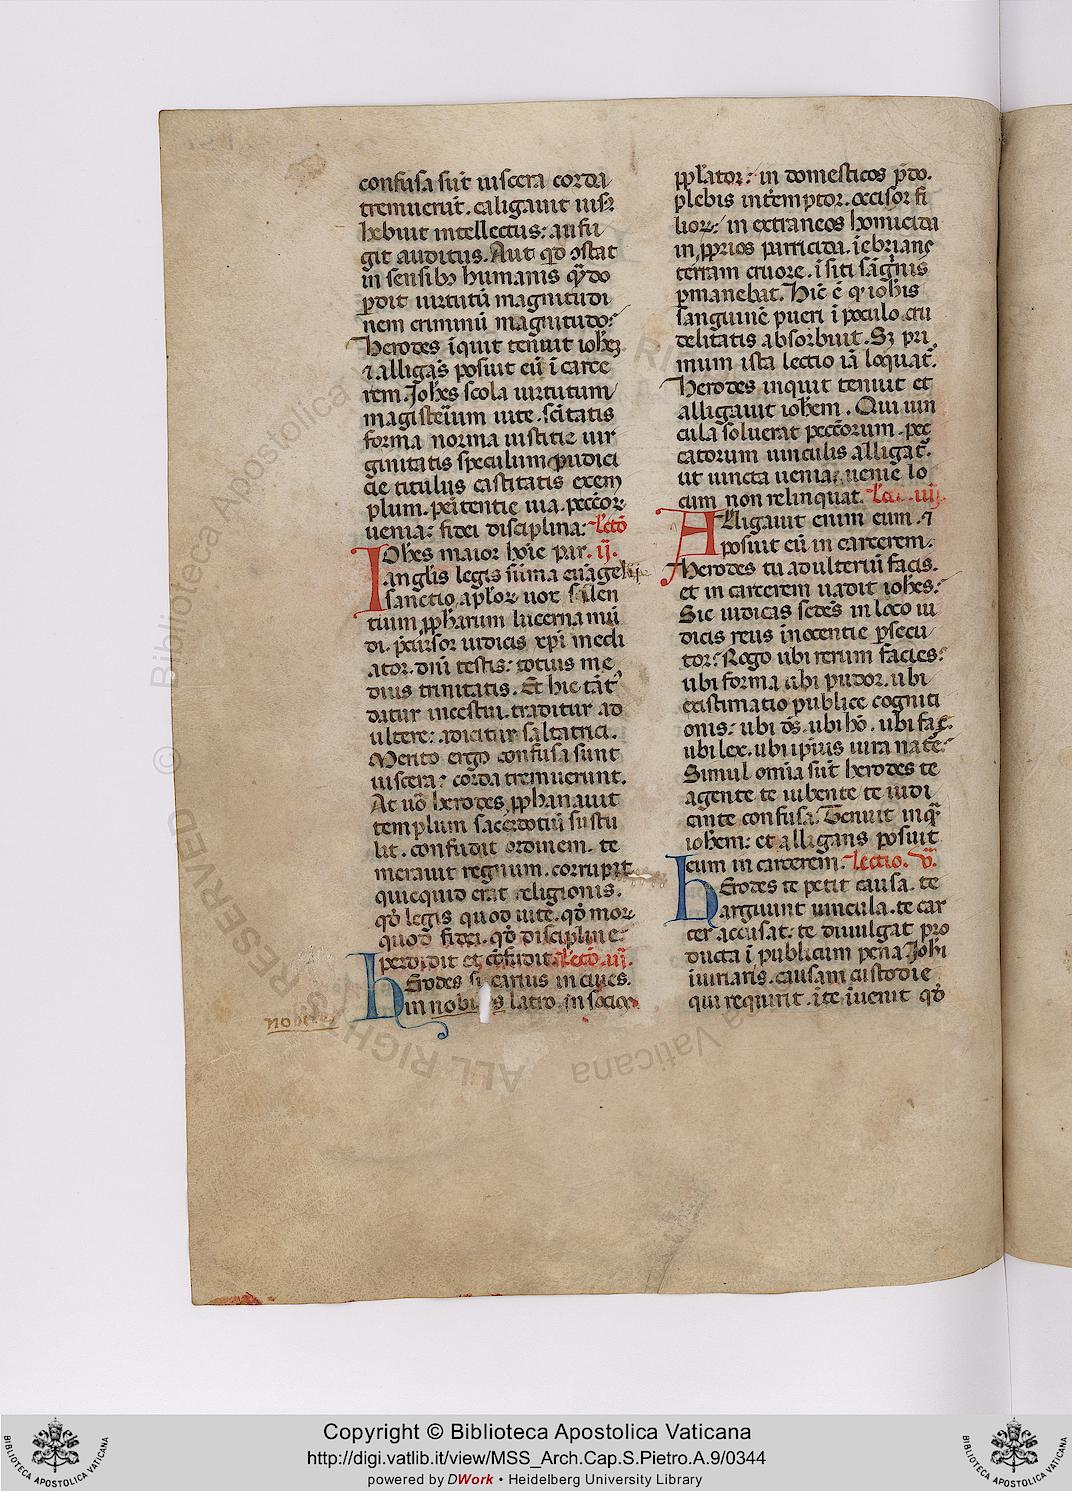 confusa sūt uiscera corda
tremuerūt. caligauit uis⁊
hebuit intellectus: aufu
git auditus. Aut qd ɔstat
in sensibꝫ humanis qd̄o
ꝑdit uirtutū magnitudi
nem criminū magnitudo:
Herodes īquit tenuit ioh̄eꝫ
⁊ alligās posuit eū ī carce
rem. Joh̄es scola uirtutum
magisteriū uite. scītatis
forma norma iustitie uir
ginitatis speculum pudici
cie titulus castitatis exem
plum. penitentie uia. pecc̄oꝝ
uenia: fidei disciplina: Lectō
Joh̄es maior hoīe par. ij.
anglis legis sūma euāgelij
sanctio aplōꝝ uox silen
tium ꝓph̄arum lucerna mū
di. p̄cursor iudicis xp̄i medi
ator. dn̄i testis: totius me
dius trinitatis. Et hic tāt'
datur incestui. traditur ad
ultere: adicitur saltatrici.
Merito ergo confusa sunt
uiscera: corda tremuerunt.
At uō herodes ꝓphanauit
templum sacerdotiū sustu
lit. confudit ordinem. te
merauit regnum. corrupit
quicquid erat religionis.
qd̄ legis quod uite. qd̄ moꝝ
quod fidei. qd̄ discipline
perdidit et cōfudit. Lectō. iij.
Herodes sicarius in ciues.
in nobiles latro. in socios
nobiles
pp̄lator: in domesticos p̄do.
plebis intēmptor. occisor fi
lioꝝ: in extraneos homicida
in ꝓprios parricida. īebrians
terram cruore. ī siti sāguis
ꝑmanebat. Hīc ē q' ioh̄is
sanguinē pueri ī poculo cru
delitatis absorbuit. Sꝫ pri
mum ista lectio iā loquat̄.
Herodes inquit tenuit et
alligauit ioh̄em. Qui uin
cula soluerat pecc̄orum. pec
catorum uinculis alligat̄.
ut uincta uenia: uenie lo
cum non relinquat. Lectō. iiij.
Alligauit enim eum. ⁊
posuit eū in carcerem.
Herodes tu adulteriū facis.
et in carcerem uadit ioh̄es:
Sic iudicas sedēs in loco iu
dicis reus inocentie ꝑsecu
tor: Rogo ubi rerum facies:
ubi forma ubi pudor. ubi
existimatio publice cogniti
onis: ubi dс̄. ubi hō. ubi fas:
ubi lex. ubi ipsius iura nat̄e:
Simul omīa sūt herodes te
agente te iubente te iudi
cante confusa. Tenuit inq̄
iohem: et alligans posuit
eum in carcerem. Lectio. v.
Herodes te petit causa. te
arguunt uincula. te car
cer accusat. te diuulgat pro
ducta ī publicum pena Johi
iuriaris. causam custodie
qui requirit. īte īuenit qd̄
Copyright © Biblioteca Apostolica Vaticana
http://digi.vatlib.it/view/MSS_Arch.Cap.S.Pietro.A.9/0344
powered by DWork • Heidelberg University Library
BIBLIOTECA APOSTOLICA VATICANA
BIBLIOTECA APOSTOLICA VATICANA
© Biblioteca Apostolica Vaticana ALL RIGHTS RESERVED